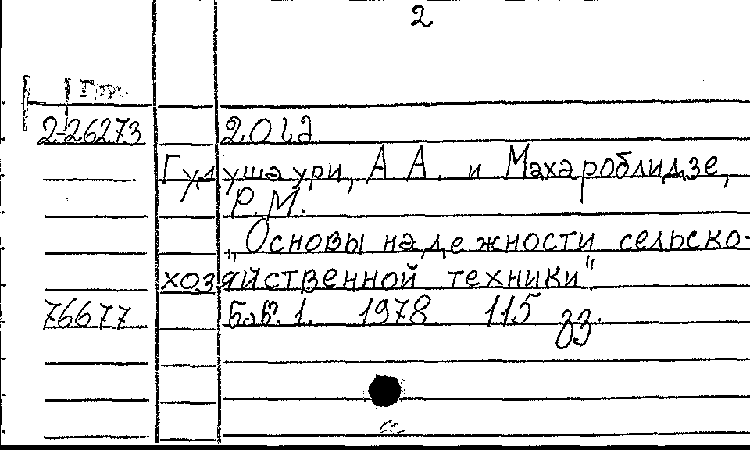 2
2-26273
Гудушаури, А А. и Махароблидзе,
Р. М.
„Основы надежности сельско-
хозяйственной техники".
76677 1. 1978 115 გვ.